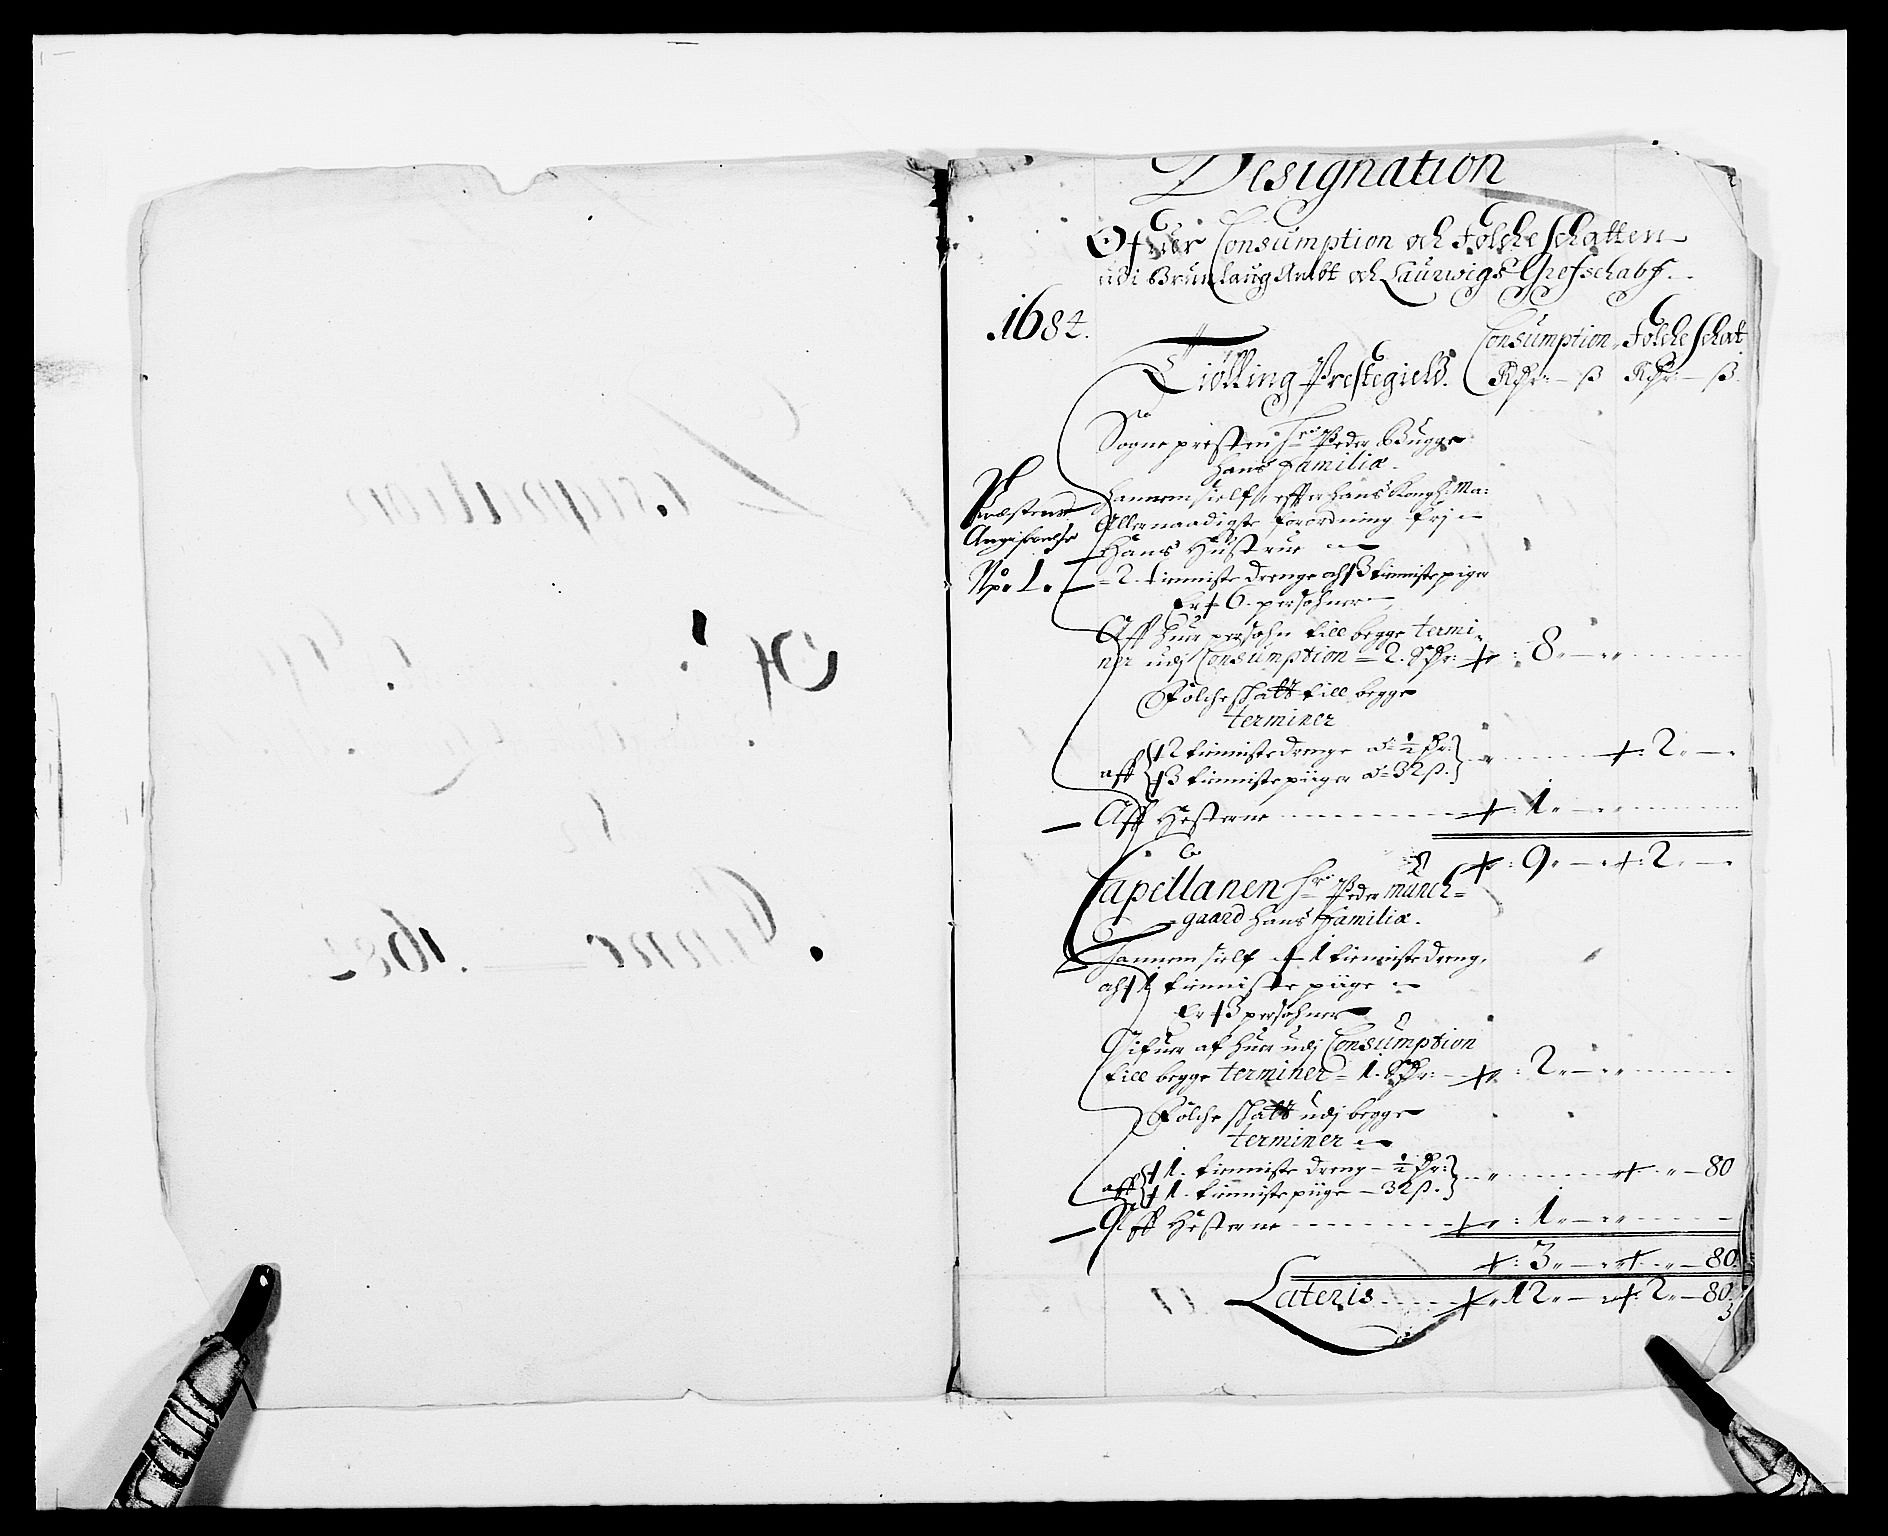 Designation
Ofuer Consumption och Folche Schatten
udi Brunlaug Ambt och Laurwigs Grefschabf.
.1682.
Consumption. Folche Schat
Tiølling Prestegield. Rdr: — ß Rdr: — ß.
Sogne presten hr: Peder Bugge
hans Familiæ.
Hannem sielf, effter hans Kongl: Ma:
Allernaadigste forordning frj
Hans Hustrue
Præstens
Angifvelse
No. 1.
2. tienniste drenge och 3 tienniste piger
Er 6. persohner
Aff huer persohn till begge termi-
ner udj Consumption — 2. Rdr: 8
Folche shatt till begge
terminer
aff 2 tienniste drenge a ½ Rdr:
3 tienniste piiger a 32 ß. 2
Aff Hesterne 1
9 2
Capellanen hr: Peder Munch-
gaard hans Familiæ.
Hannem sielf 1 tienniste dreng,
och 1 tienniste piige
Er 3 persohner
Gifuer af huer udj Consumption
till begge terminer 1. Rdr: 2
Folche shatt udj begge
terminer
aff 1. tienniste dreng — ½ Rdr:
1. tienniste piige — 32 ß. 80
Aff Hesterne 1
3 80
Lateris 12 2 80
3